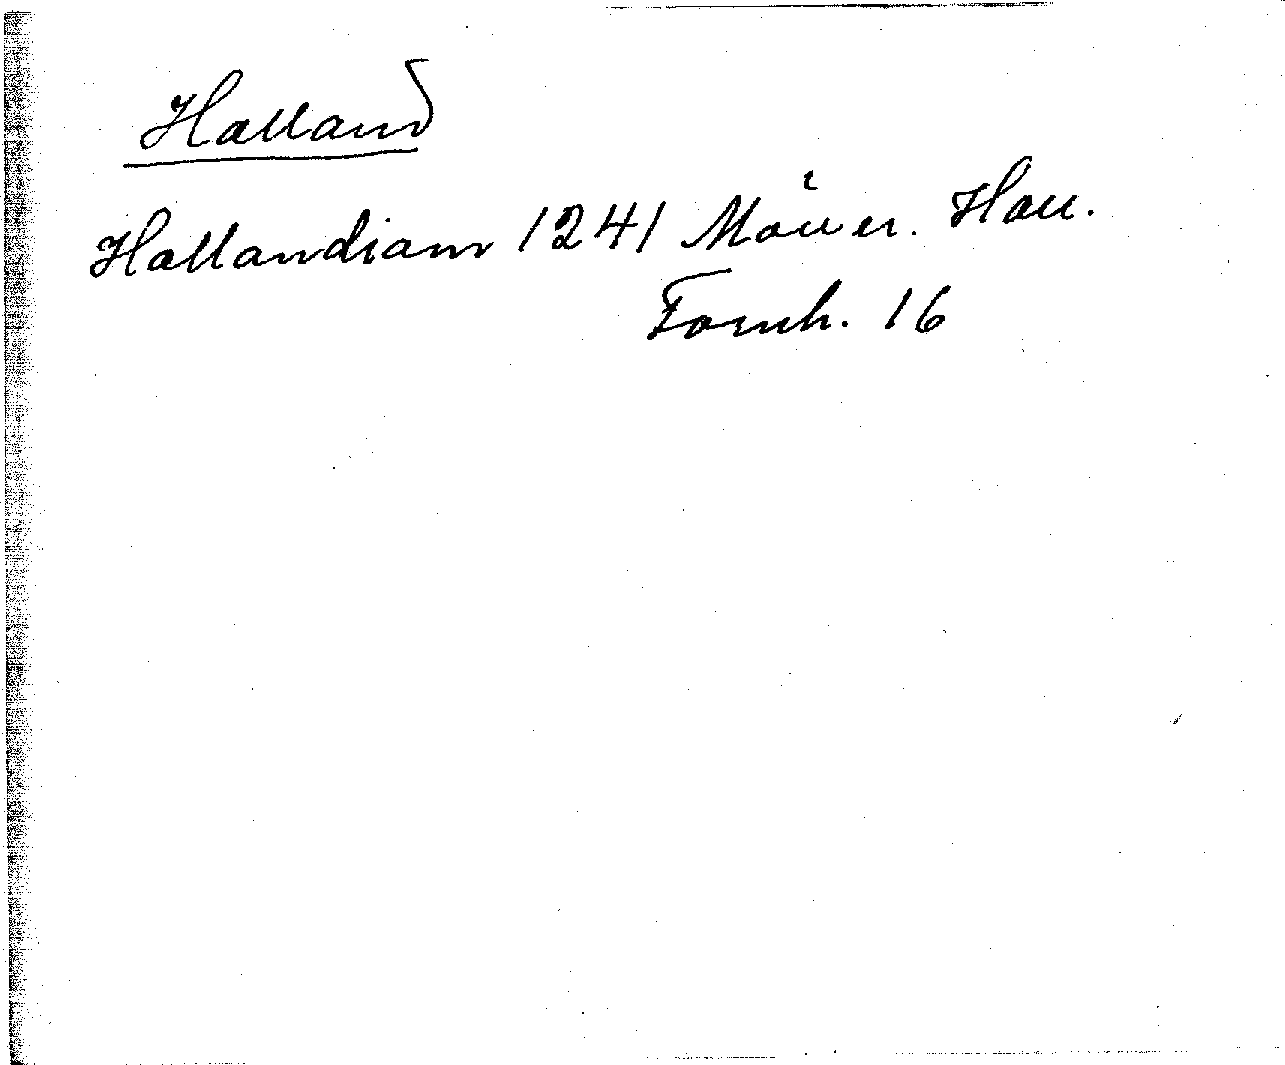 Halland
Hallandiam 1241 Möller. Hall.
Fornh. 16